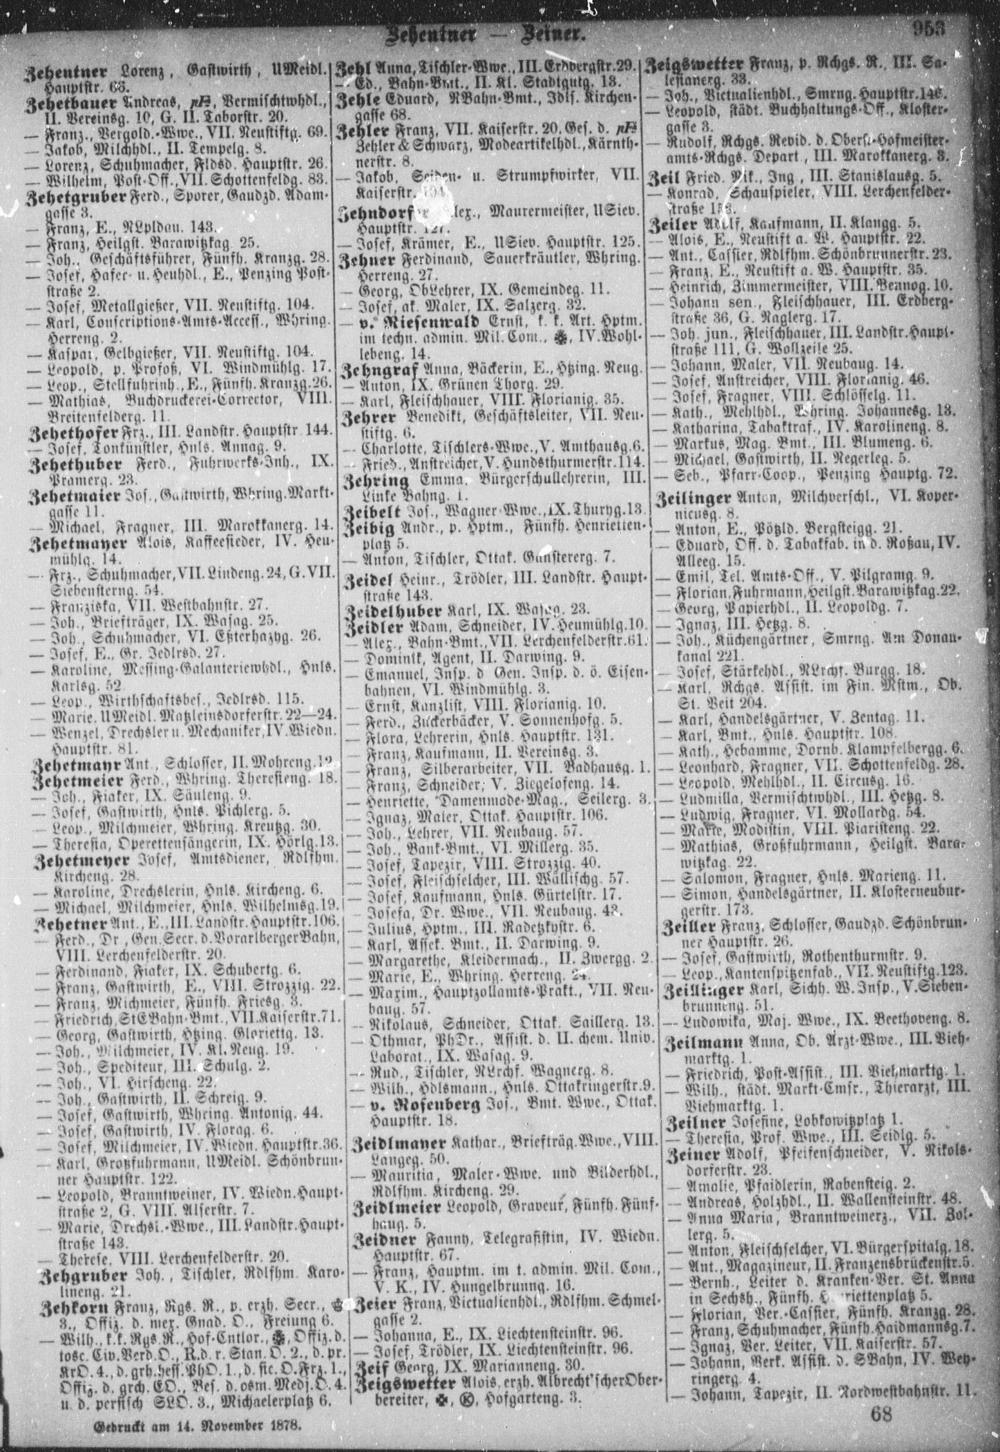 Zehentner — Zeiner.
953
Zehentner Lorenz, Gastwirth, UMeidl.
Hauptstr. 66.
Zehetbauer Andreas, Vermischtwhdl.,
II. Vereinsg. 10, G. II. Taborstr. 20.
— Franz, Vergold.-Wwe., VII. Neustiftg. 69.
— Jakob, Milchhdl., II. Tempelg. 8.
— Lorenz, Schuhmacher, Fldsd. Hauptstr. 26.
— Wilhelm, Post-Off., VII. Schottenfeldg. 83.
Zehetgruber Ferd., Sporer, Gaudzd. Adam-
gasse 3.
— Franz, E., NLpldau. 143.
— Franz, Heilgst. Barawitzkag. 25.
— Joh., Geschäftsführer, Fünfh. Kranzg. 28.
— Josef, Hafer- u. Heuhdl., E., Penzing Post-
straße 2.
— Josef, Metallgießer, VII. Neustiftg. 104.
— Karl, Conscriptions-Amts-Access., Whring.
Herreng. 2.
— Kaspar, Gelbgießer, VII. Neustiftg. 104.
— Leopold, p. Profoß, VI. Windmühlg. 17.
— Leop., Stellfuhrinh., E., Fünfh. Kranzg. 26.
— Mathias, Buchdruckerei-Corrector, VIII.
Breitenfelderg. 11.
Zehethofer Frz., III. Landstr. Hauptstr. 144.
— Josef, Tonkünstler, Hnls. Annag. 9.
Zehethuber Ferd., Fuhrwerks-Inh., IX.
Pramerg. 23.
Zehetmaier Jos., Gastwirth, Whring. Markt-
gasse 11.
— Michael, Fragner, III. Marokkanerg. 14.
Zehetmayer Alois, Kaffeesieder, IV. Heu-
mühlg. 14.
— Frz., Schuhmacher, VII. Lindeng. 24, G. VII.
Siebensterng. 54.
— Franziska, VII. Westbahnstr. 27.
— Joh., Briefträger, IX. Wasag. 25.
— Joh., Schuhmacher, VI. Eßterhazyg. 26.
— Josef, E., Gr. Jedlrsd. 27.
— Karoline, Messing-Galanteriewhdl., Hnls.
Karlsg. 52
— Leop., Wirthschaftsbes., Jedlrsd. 115.
— Marie, UMeidl. Matzleinsdorferstr. 22—24.
— Wenzel, Drechsler u. Mechaniker, IV. Wiedn.
Hauptstr. 81.
Zehetmayr Ant., Schlosser, II. Mohreng. 12
Zehetmeier Ferd., Whring. Theresieng. 18.
— Joh., Fiaker, IX. Säuleng. 9.
— Josef, Gastwirth, Hnls. Pichlerg. 5.
— Leop., Milchmeier, Whring. Kreutzg. 30.
— Theresia, Operettensängerin, IX. Hörlg. 13.
Zehetmeyer Josef, Amtsdiener, Rdlfhm.
Kircheng. 28.
— Karoline, Drechslerin, Hnls. Kircheng. 6.
— Michael, Milchmeier, Hnls. Wilhelmsg. 19.
Zehetner Ant., E., III. Landstr. Hauptstr. 106.
— Ferd., Dr., Gen. Secr. d. Vorarlberger Bahn,
VIII. Lerchenfelderstr. 20.
— Ferdinand, Fiaker, IX. Schubertg. 6.
— Franz, Gastwirth, E., VIII. Strozzig. 22.
— Franz, Michmeier, Fünfh. Friesg. 3.
— Friedrich, StEBahn-Bmt., VII. Kaiserstr. 71.
— Georg, Gastwirth, Htzing. Gloriettg. 13.
— Joh., Milchmeier, IV. Kl. Neug. 19.
— Joh., Spediteur, III. Schulg. 2.
— Joh., VI. Hirscheng. 22.
— Joh., Gastwirth, II. Schreig. 9.
— Josef, Gastwirth, Whring. Antonig. 44.
— Josef, Gastwirth, IV. Florag. 6.
— Josef, Milchmeier, IV. Wiedn. Hauptstr. 36.
— Karl, Großfuhrmann, UMeidl. Schönbrun-
ner Hauptstr. 122.
— Leopold, Branntweiner, IV. Wiedn. Haupt-
straße 2, G. VIII. Alserstr. 7.
— Marie, Drechsl.-Wwe., III. Landstr. Haupt-
straße 143.
— Therese, VIII. Lerchenfelderstr. 20.
Zehgruber Joh., Tischler, Rdlfhm. Karo-
lineng. 21.
Zehkorn Franz, Rgs. R., p. erzh. Secr.,
3., Offiz. d. mex. Gnad. O., Freiung 6.
— Wilh., k.k. Rgs. R., Hof-Cntlor., Offiz. d.
tosc. Civ. Verd. O., R. d. r. Stan. O. 2., d. pr.
KrO. 4., d. grh. hess. PhO. 1., d. sic. O. Frz. 1.,
Offiz. d. grch. EO., Bes. d. osm. Medj. O. 4.
u. d. persisch SLO. 3., Michaelerplatz 6.
Gedruckt am 14. November 1878.
Zehl Anna, Tischler-Wwe., III. Erdbergstr. 29.
— Ed., Bahn-Bmt., II. Kl. Stadtgutg. 13.
Zehle Eduard, NBahn-Bmt., Jdls. Kirchen-
gasse 68.
Zehler Franz, VII. Kaiserstr. 20, Ges. d.
Zehler & Schwarz, Modeartikelhdl., Kärnth-
nerstr. 8.
— Jakob, Seiden- u. Strumpfwirker, VII.
Kaiserstr.
Zehndorfer Alex., Maurermeister, USiev.
Hauptstr. 127.
— Josef, Krämer, E., USiev. Hauptstr. 125.
Zehner Ferdinand, Sauerkräutler, Whring.
Herreng. 27.
— Georg, ObLehrer, IX. Gemeindeg. 11.
— Josef, ak. Maler, IX. Salzerg. 32.
— v. Riesenwald Ernst, k. k. Art. Hptm.
im techn. admin. Mil. Com., IV. Wohl-
lebeng. 14.
Zehngraf Anna, Bäckerin, E., Htzing. Neug.
— Anton, IX. Grünen Thorg. 29.
— Karl, Fleischhauer, VIII. Florianig. 35.
Zehrer Benedikt, Geschäftsleiter, VII. Neu-
stiftg. 6.
— Charlotte, Tischlers-Wwe., V. Amthausg. 6.
— Fried., Anstreicher, V. Hundsthurmerstr. 114.
Zehring Emma, Bürgerschullehrerin, III.
Linke Bahng. 1.
Zeibelt Jos., Wagner-Wwe., IX. Thuryg. 13.
Zeibig Andr., p. Hptm., Fünfh. Henrietten-
platz 5.
— Anton, Tischler, Ottak. Gansterergr. 7.
Zeidel Heinr., Trödler, III. Landstr. Haupt-
straße 143.
Zeidelhuber Karl, IX. Wasag. 23.
Zeidler Adam, Schneider, IV. Heumühlg. 10.
— Alex., Bahn-Bmt., VII. Lerchenfelderstr. 61.
— Dominik, Agent, II. Darwing. 9.
— Emanuel, Insp. d Gen. Insp. d. ö. Eisen-
bahnen, VI. Windmühlg. 3.
— Ernst, Kanzlist, VIII. Florianig. 10.
— Ferd., Zuckerbäcker, V. Sonnenhofg. 5.
— Flora, Lehrerin, Hnls. Hauptstr. 131.
— Franz, Kaufmann, II. Vereinsg. 3.
— Franz, Silberarbeiter, VII. Badhausg. 1.
— Franz, Schneider, V. Ziegelofeng. 14.
— Henriette, Damenmode-Mag., Seilerg. 3.
— Ignaz, Maler, Ottak. Hauptstr. 106.
— Joh., Lehrer, VII. Neubaug. 57.
— Joh., Bank-Bmt., VI. Millerg. 35.
— Josef, Tapezir, VIII. Strozzig. 40.
— Josef, Fleischselcher, III. Wällischg. 57.
— Josef, Kaufmann, Hnls. Gürtelstr. 17.
— Josefa, Dr. Wwe., VII. Neubaug. 43.
— Julius, Hptm., III. Radetzkystr. 6.
— Karl, Assek. Bmt., II. Darwing. 9.
— Margarethe, Kleidermach., II. Zwergg. 2.
— Marie, E., Whring. Herreng. 24.
— Maxim., Hauptzollamts-Prakt., VII. Neu-
baug. 57.
— Nikolaus, Schneider, Ottak. Saillerg. 13.
— Othmar, PhDr., Assist. d. II. chem. Univ.
Laborat., IX. Wasag. 9.
— Rud., Tischler, NLrchf. Wagnerg. 8.
— Wilh., Hdlsmann., Hnls. Ottakringerstr. 9.
— v. Rosenberg Jos., Bmt. Wwe., Ottak.
Hauptstr. 18.
Zeidlmayer Kathar., Briefträg. Wwe., VIII.
Langeg. 50.
— Mauritia, Maler-Wwe. und Bilderhdl.,
Rdlfhm. Kircheng. 29.
Zeidlmeier Leopold, Graveur, Fünfh. Fünf-
haug. 5.
Zeidner Fanny, Telegrafistin, IV. Wiedn.
Hauptstr. 67.
— Franz, Hauptm. im t. admin. Mil. Com.,
V. K., IV. Hungelbrunng. 16.
Zeier Franz, Victualienhdl., Rdlfhm. Schmel-
gasse 2.
— Johanna, E., IX. Liechtensteinstr. 96.
— Josef, Trödler, IX. Liechtensteinstr. 96.
Zeif Georg, IX. Marianneng. 30.
Zeigswetter Alois, erzh. Albrecht'scher Ober-
bereiter, Hofgarteng. 3.
Zeigswetter Franz, p. Rchgs. R., III. Sa-
lesianerg. 33.
— Joh., Victualienhdl., Smrng. Hauptstr. 146.
— Leopold, städt. Buchhaltungs-Off., Kloster-
gasse 3.
— Rudolf, Rchgs. Revid. d. Oberst-Hofmeister-
amts-Rchgs. Depart., III. Marokkanerg. 3.
Zeil Fried. Nik., Ing., III. Stanislausg. 5.
— Konrad, Schauspieler, VIII. Lerchenfelder-
straße
Zeiler Adolf, Kaufmann, II. Klangg. 5.
— Alois, E., Neustift a. W. Hauptstr. 22.
— Ant., Cassier, Rdlfhm. Schönbrunnerstr. 23.
— Franz, E., Neustift a. W. Hauptstr. 35.
— Heinrich, Zimmermeister, VIII. Bennog. 10.
— Johann sen., Fleischhauer, III. Erdberg-
straße 36, G. Naglerg. 17.
— Joh. jun., Fleischhauer, III. Landstr. Haupt-
straße 111, G. Wollzeile 25.
— Johann, Maler, VII. Neubaug. 14.
— Josef, Anstreicher, VIII. Florianig. 46.
— Josef, Fragner, VIII. Schlösselg. 11.
— Kath., Mehlhdl., Whring. Johannesg. 13.
— Katharina, Tabaktraf., IV. Karolineng. 8.
— Markus, Mag. Bmt., III. Blumeng. 6.
— Michael, Gastwirth, II. Negerleg. 5.
— Seb., Pfarr-Coop., Penzing Hauptg. 72.
Zeilinger Anton, Milchverschl., VI. Koper-
nicusg. 8.
— Anton, E., Pötzld. Bergsteigg. 21.
— Eduard, Off. d. Tabakfab. in d. Roßau, IV.
Alleeg. 15.
— Emil, Tel. Amts-Off., V. Pilgramg. 9.
— Florian, Fuhrmann, Heilgst. Barawitzkag. 22.
— Georg, Papierhdl., II. Leopoldg. 7.
— Ignaz, III. Hetzg. 8.
— Joh., Küchengärtner, Smrng. Am Donau-
kanal 221.
— Josef, Stärkehdl., NLrchf. Burgg. 18.
— Karl, Rchgs. Assist. im Fin. Mstm., Ob.
St. Veit 204.
— Karl, Handelsgärtner, V. Zentag. 11.
— Karl, Bmt., Hnls. Hauptstr. 108.
— Kath., Hebamme, Dornb. Klampfelbergg. 6.
— Leonhard, Fragner, VII. Schottenfeldg. 28.
— Leopold, Mehlhdl., II. Circusg. 16.
— Ludmilla, Vermischtwhdl., III. Hetzg. 8.
— Ludwig, Fragner, VI. Mollardg. 54.
— Marie, Modistin, VIII. Piaristeng. 22.
— Mathias, Großfuhrmann, Heilgst. Bara-
witzkag. 22.
— Salomon, Fragner, Hnls. Marieng. 11.
— Simon, Handelsgärtner, II. Klosterneubur-
gerstr. 173.
Zeiller Franz, Schlosser, Gaudzd. Schönbrun-
ner Hauptstr. 26.
— Josef, Gastwirth, Rothenthurmstr. 9.
— Leop., Kantenspitzenfab., VII. Neustiftg. 123.
Zeillinger Karl, Sichh. W. Insp., V. Sieben-
brunneng. 51.
— Ludowika, Maj. Wwe., IX. Beethoveng. 8.
Zeilmann Anna, Ob. Arzt-Wwe., III. Vieh-
marktg. 1.
— Friedrich, Post-Assist., III. Viehmarktg. 1.
— Wilh., städt. Markt-Cmsr., Thierarzt, III.
Viehmarktg. 1.
Zeilner Josefine, Lobkowitzplatz 1.
— Theresia, Prof. Wwe., III. Seidlg. 5.
Zeiner Adolf, Pfeifenschneider, V. Nikols-
dorferstr. 23.
— Amalie, Pfaidlerin, Rabensteig. 2.
— Andreas, Holzhdl., II. Wallensteinstr. 48.
— Anna Maria, Branntweinerz., VII. Zol-
lerg. 5.
— Anton, Fleischselcher, VI. Bürgerspitalg. 18.
— Ant., Magazineur, II. Franzensbrückenstr. 5.
— Bernh., Leiter d. Kranken-Ver. St. Anna
in Sechsh., Fünfh. Henriettenplatz 5.
— Florian, Ver.-Cassier, Fünfh. Kranzg. 28.
— Franz, Schuhmacher, Fünfh. Haidmannsg. 7.
— Ignaz, Ver. Leiter, VII. Kaiserstr. 57.
— Johann, Verk. Assist. d. SBahn, IV. Wey-
ringerg. 4.
— Johann, Tapezir, II. Nordwestbahnstr. 11.
68